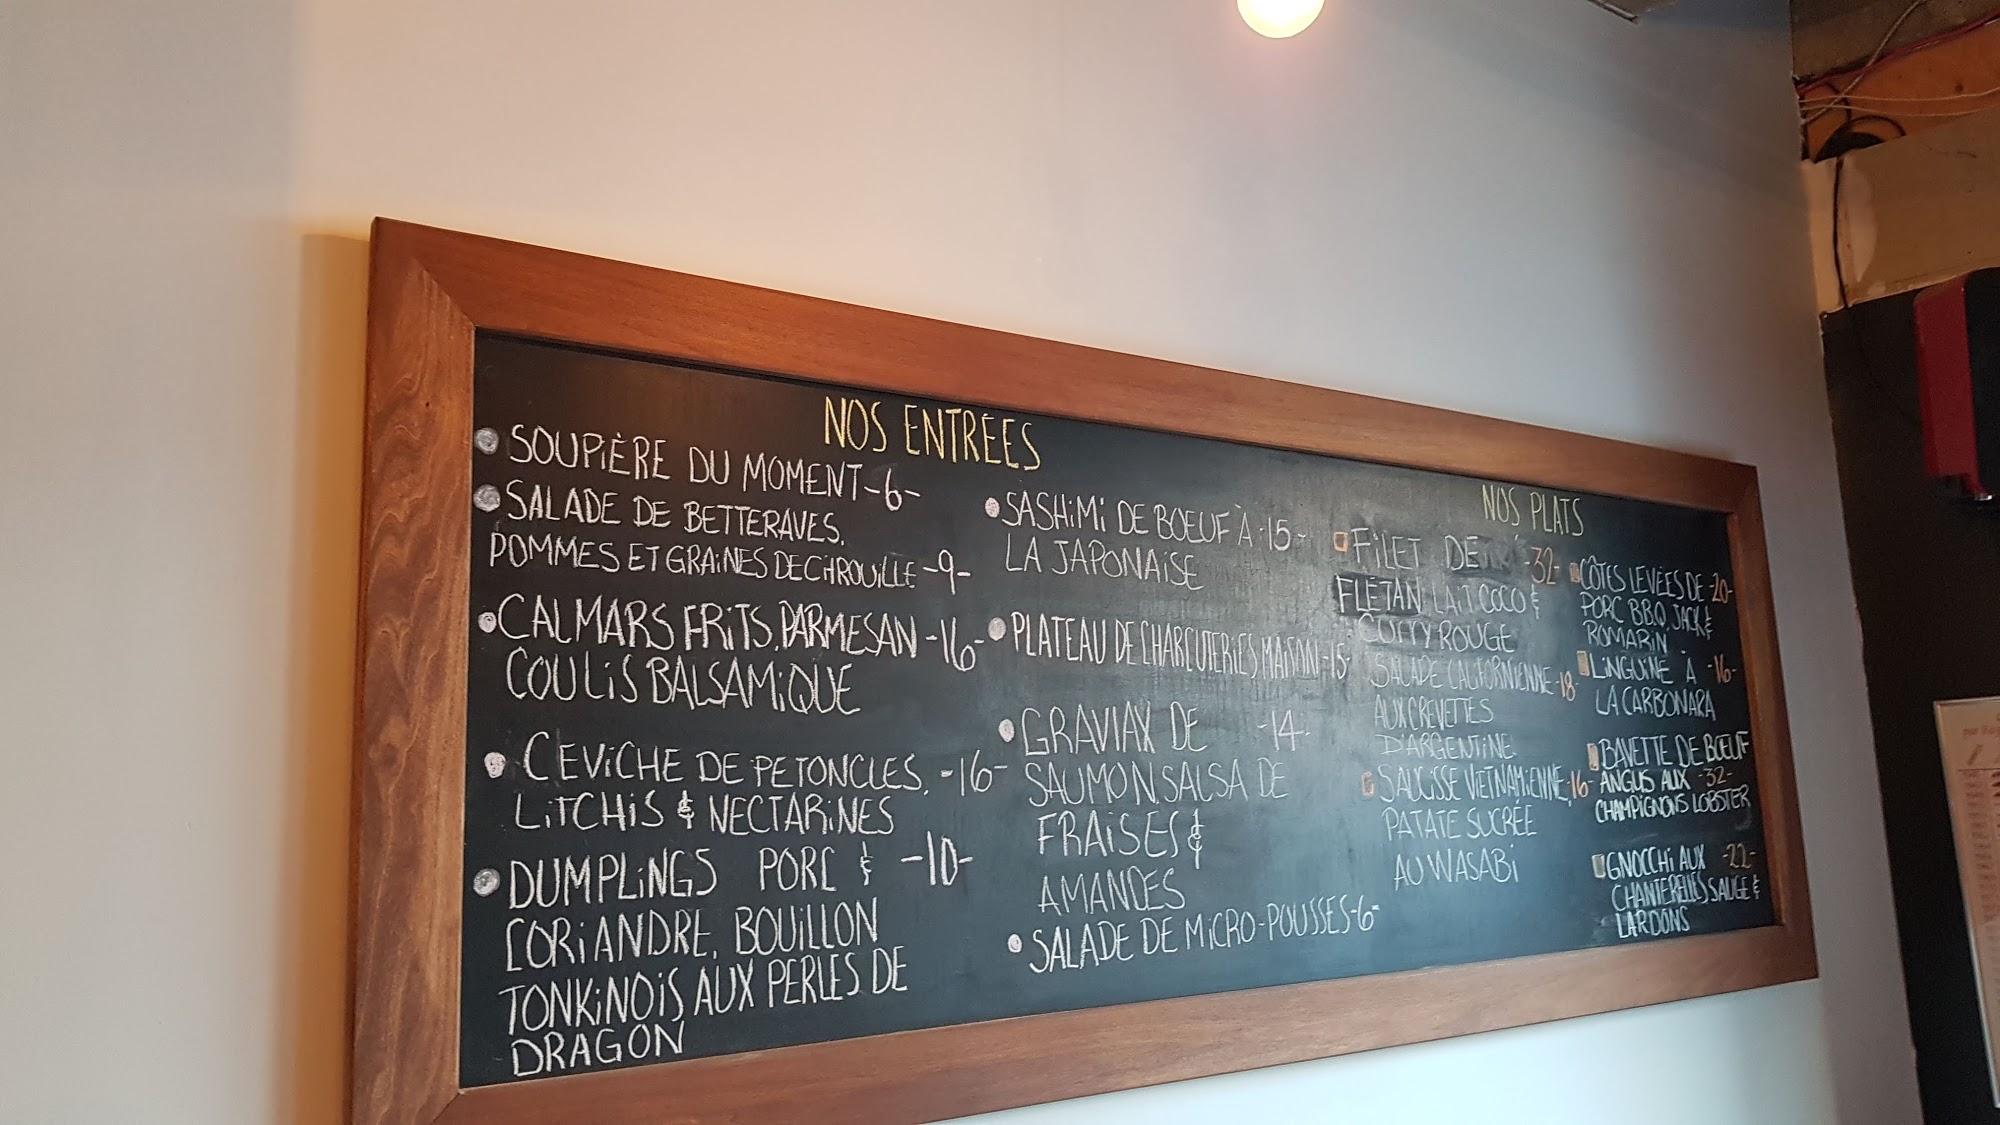 NOS ENTRÉES
SOUPIÈRE DU MOMENT -6-
SALADE DE BETTERAVES,
POMMES ET GRAINES DE CITROUILLE -9-
CALMARS FRITS, PARMESAN -16-
COULIS BALSAMIQUE
CEVICHE DE PETONCLES, -16-
LITCHIS & NECTARINES
DUMPLINGS PORC & -10-
CORIANDRE, BOUILLON
TONKINOIS AUX PERLES DE
DRAGON
SASHIMI DE BOEUF À -15-
LA JAPONAISE
PLATEAU DE CHARCUTERIES MAISON -15-
GRAVLAX DE -14-
SAUMON, SALSA DE
FRAISES &
AMANDES
SALADE DE MICRO-POUSSES -6-
NOS PLATS
FILET DE -32-
FLÉTAN, LAIT COCO &
CURRY ROUGE
SALADE CALIFORNIENNE -18
AUX CREVETTES
D'ARGENTINE
SAUCISSE VIETNAMIENNE, 16-
PATATE SUCRÉE
AU WASABI
CÔTES LEVÉES DE -20-
PORC B.B.Q, JACK &
ROMARIN
LINGUINE À -16-
LA CARBONARA
BAVETTE DE BŒUF
ANGUS AUX -32-
CHAMPIGNONS LOBSTER
GNOCCHI AUX -22-
CHANTERELLES SAUGE &
LARDONS